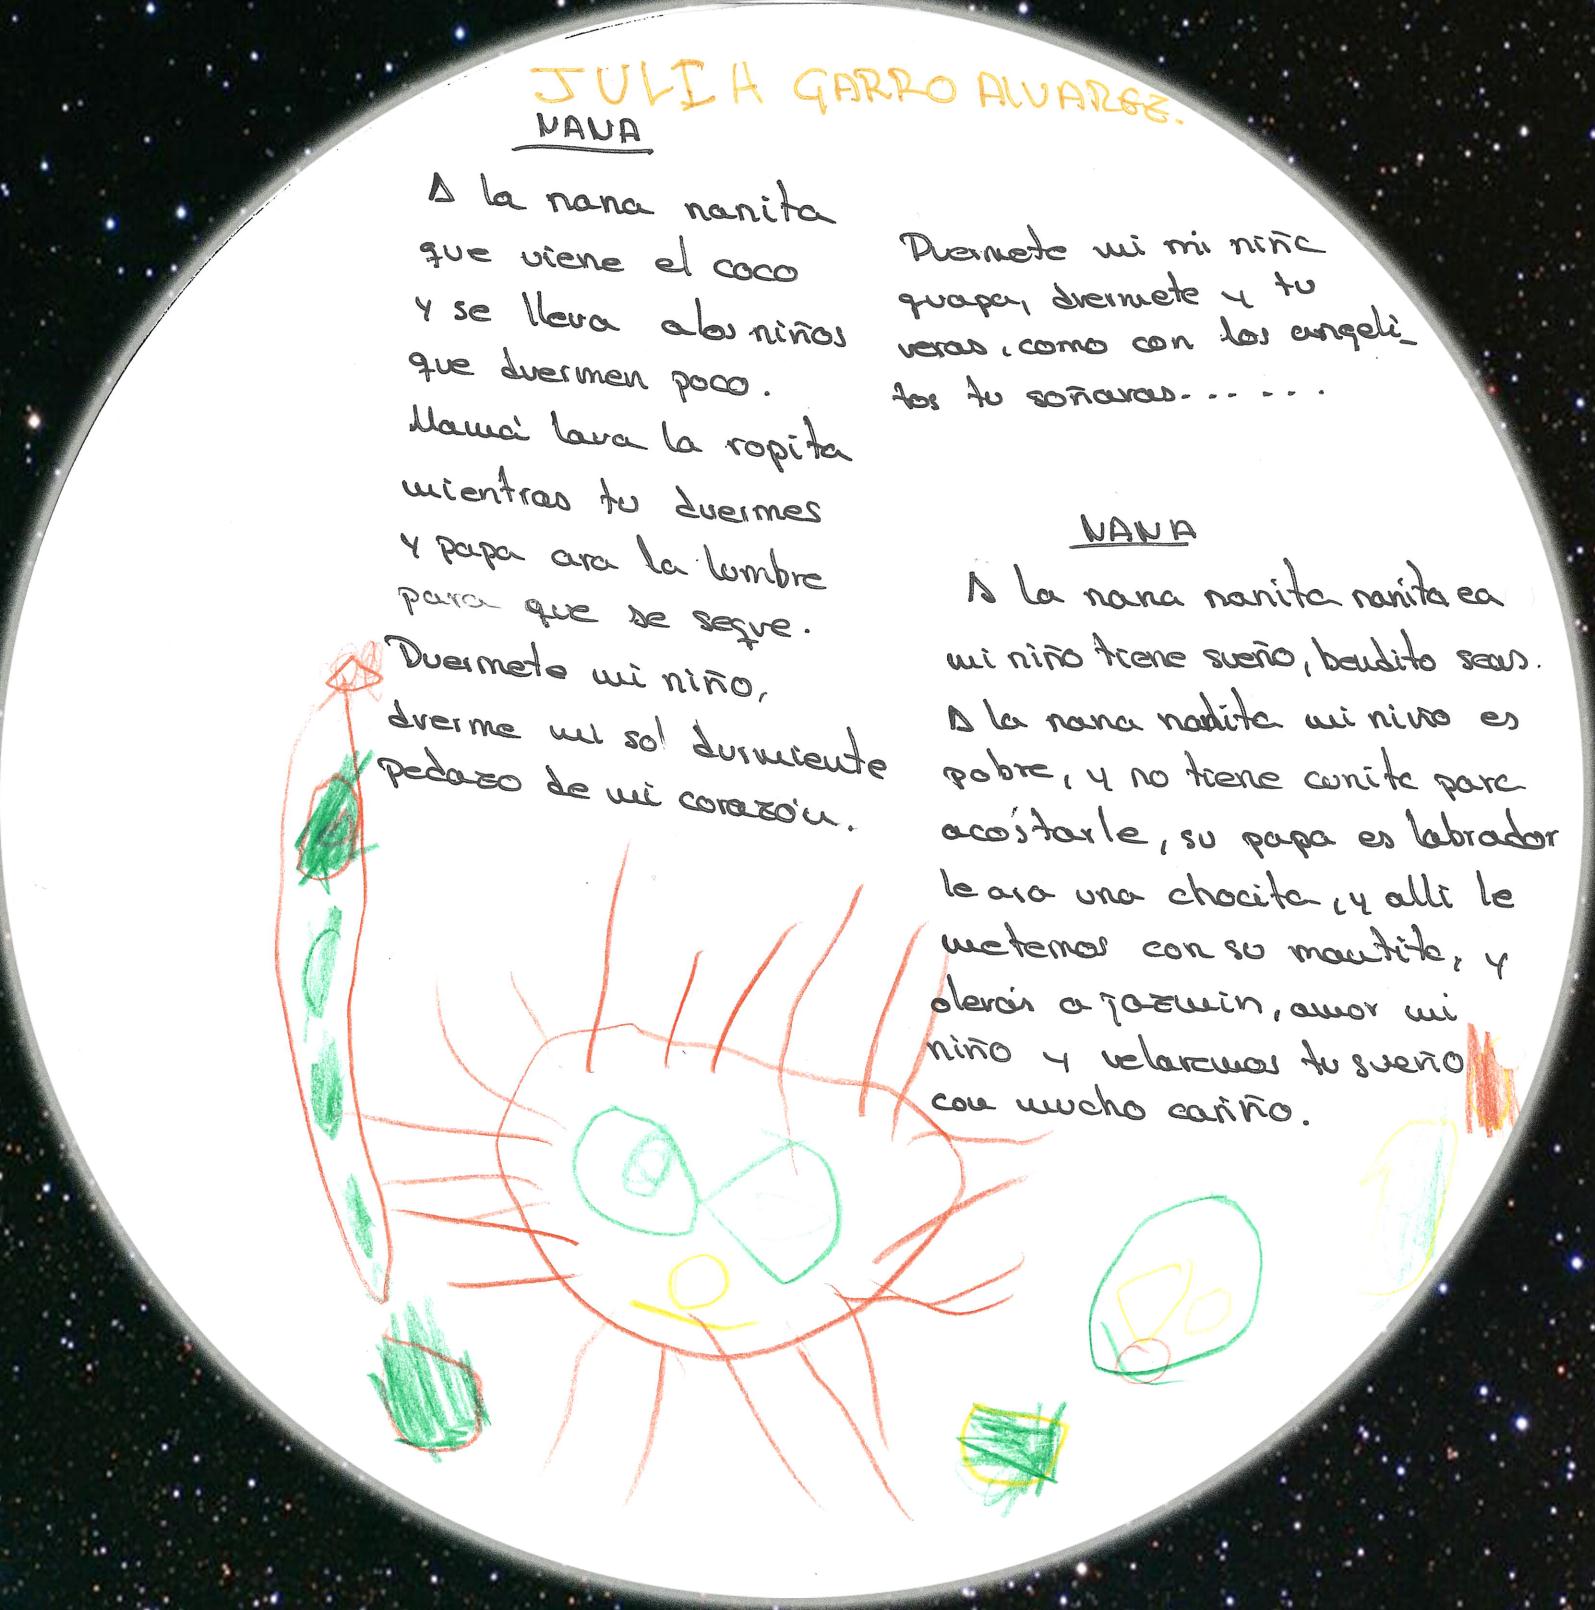 JULIA GARRO ALVAREZ.
NANA
A la nana nanita
que viene el coco
y se lleva a los niños
que duermen poco.
Mamá lava la ropita
mientras tu duermes
y papa ara la lumbre
para que se seque.
Duermete mi niño,
duerme mi sol durmiente
pedazo de mi corazón.
Duermete mi mi niña
guapa, duermete y tu
veras, como con los angeli_
tos tu soñaras......
NANA
A la nana nanita nanita ea
mi niño tiene sueño, bendito seas.
A la nana nanita mi niño es
pobre, y no tiene cunita para
acostarle, su papa es labrador
le ara una chocita, y alli le
metemos con su mantita, y
olerás a jazmin, amor mi
niño y velaremos tu sueño
con mucho cariño.